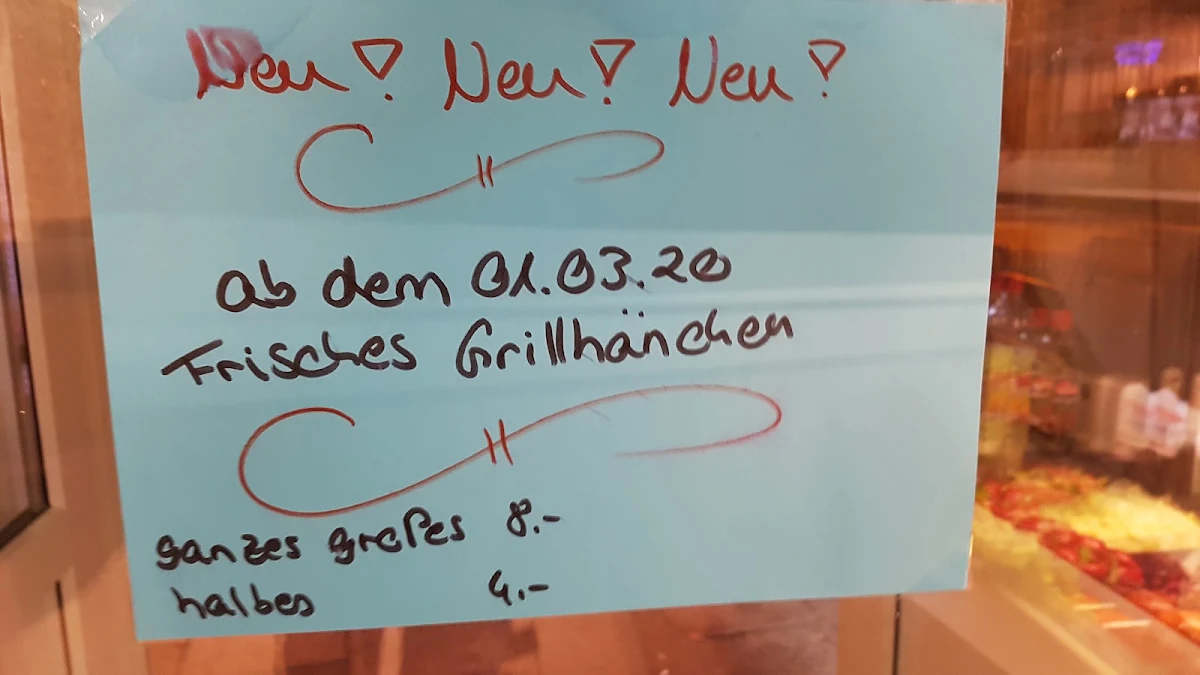 Neu! Neu! Neu!
ab dem 01.03.20
Frisches Grillhänchen
ganzes großes 8.-
halbes 4.-